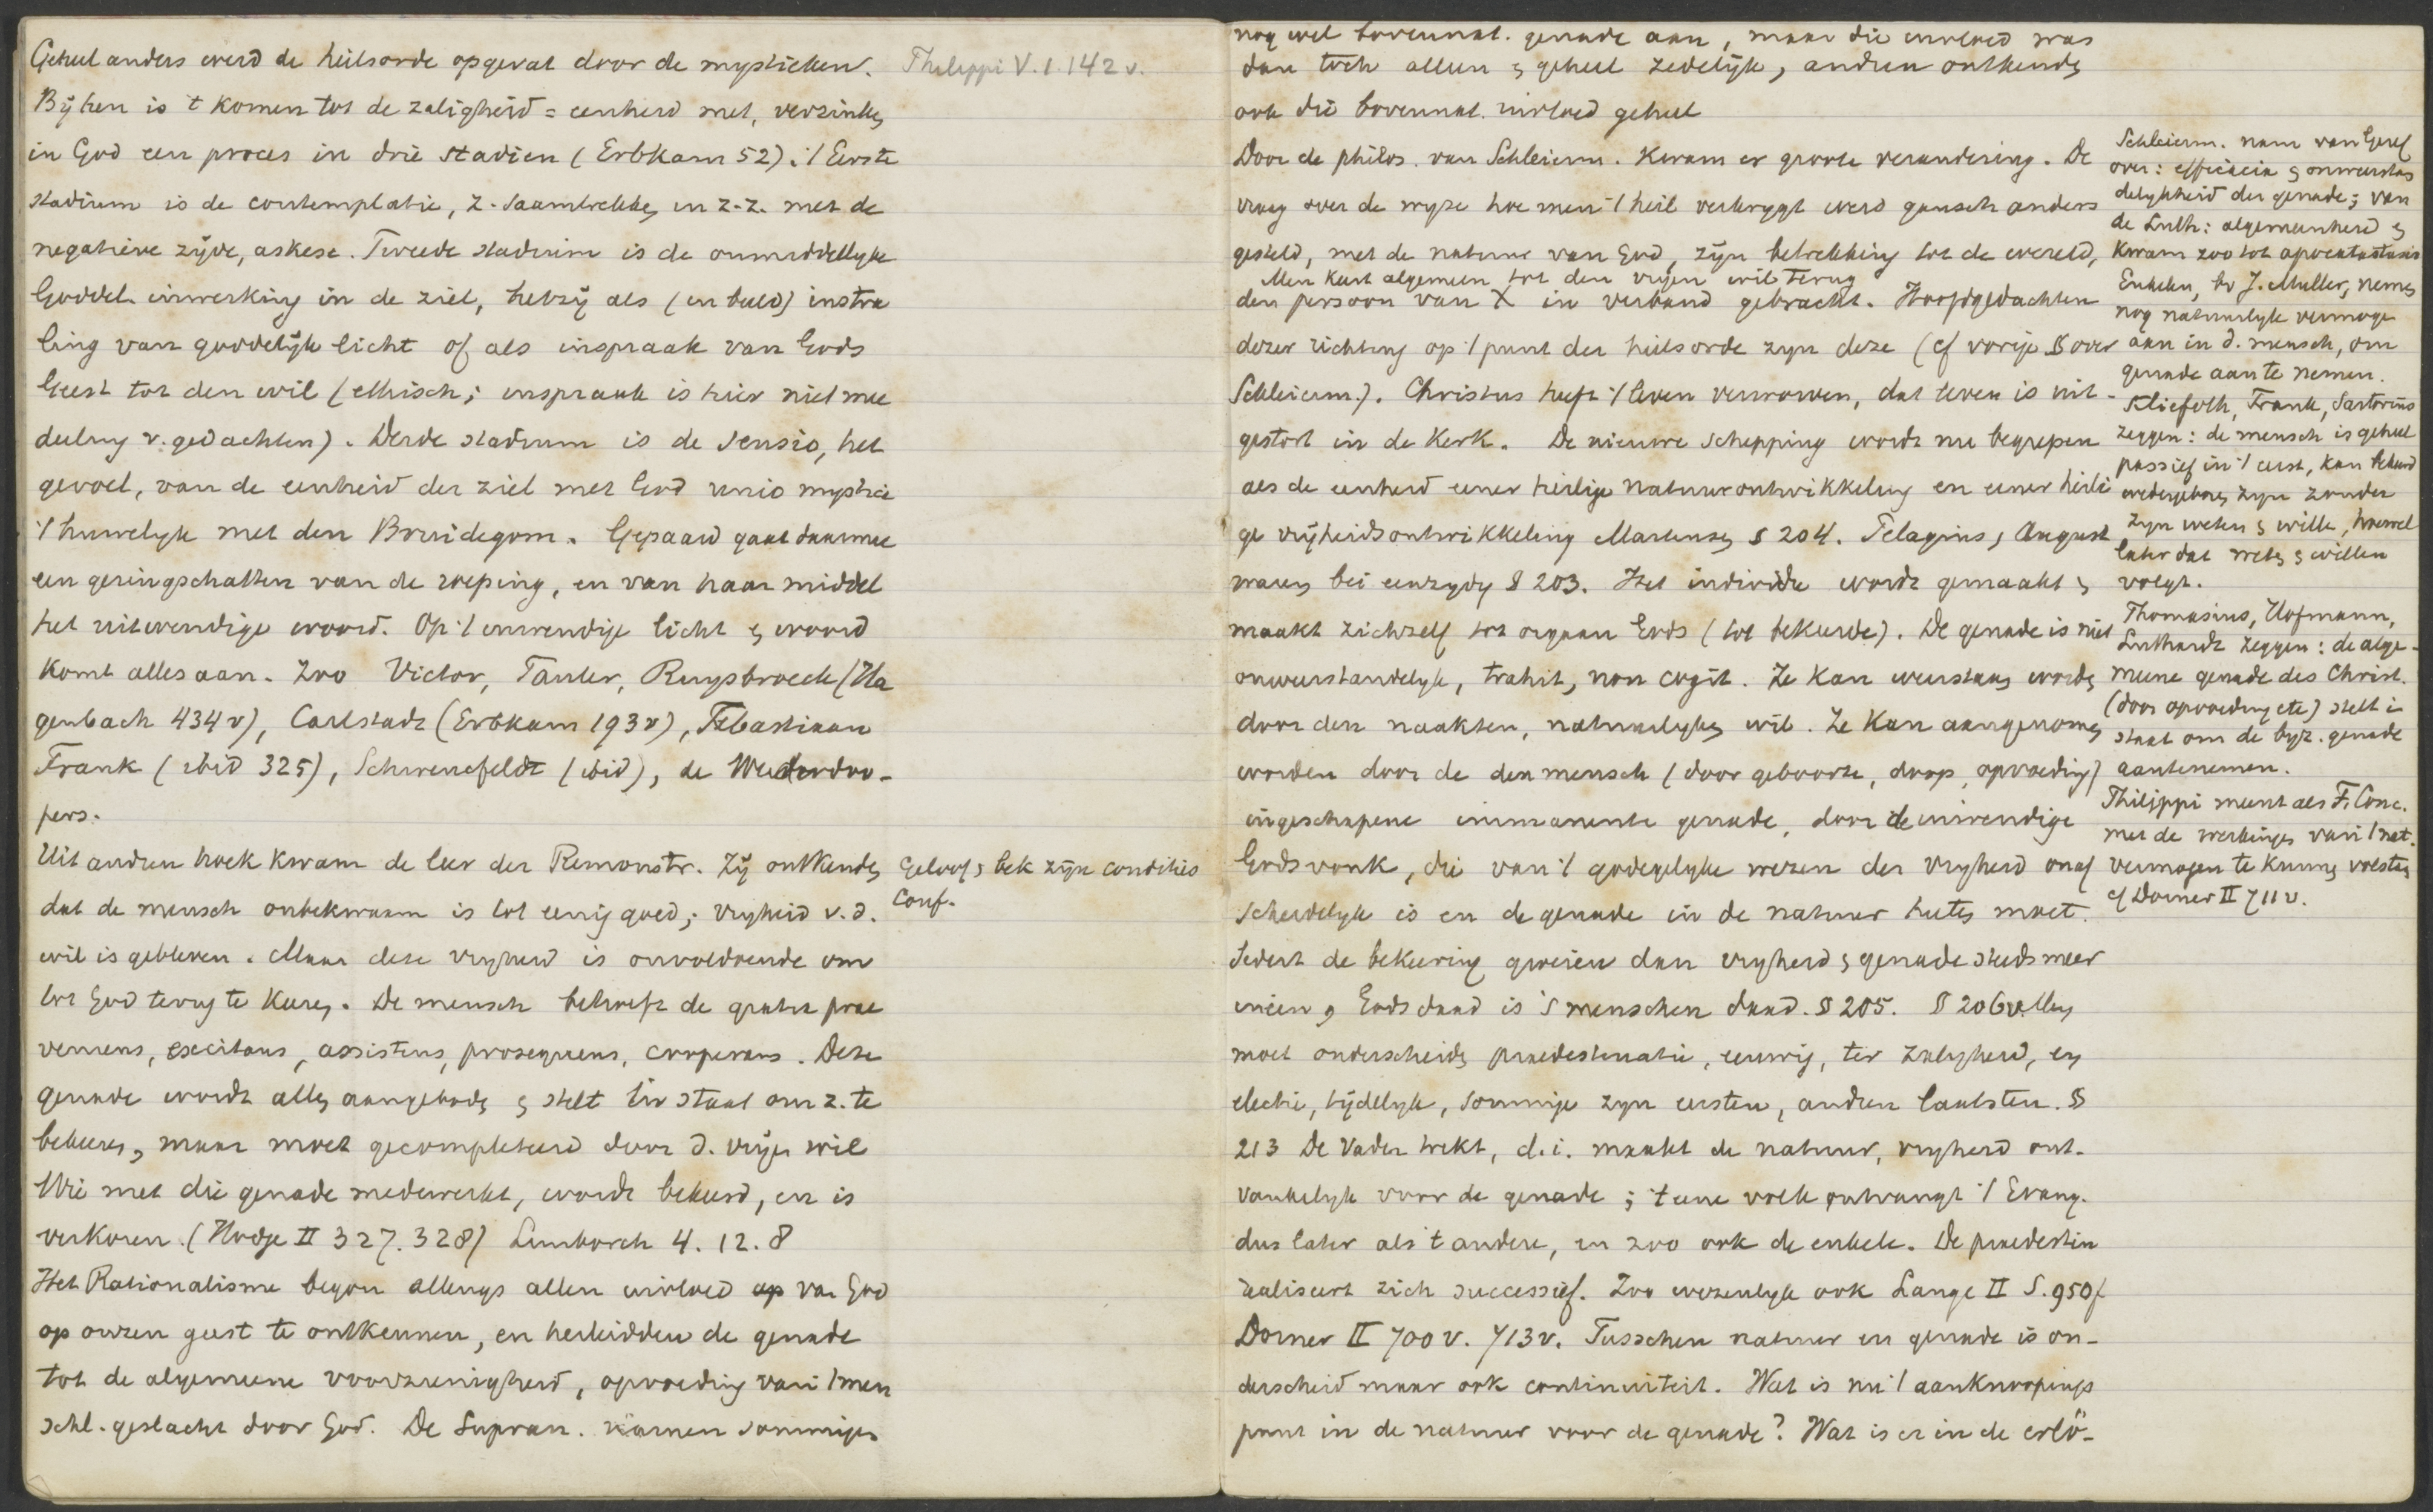 Geheel anders werd de heilsorde opgevat door de mystieken.
Philippi V.1.142 v.
Bij hen is 't komen tot de zaligheid = eenheid met, verzinken
in God een proces in drie stadien (Erbkam 52). 't Eerste
stadium is de contemplatie, z. saamtrekken in z.z. met de
negatieve zijde, askese. Tweede stadium is de onmiddellijke
Goddel. inwerking in de ziel, hetzij als (in beeld) instra
ling van goddelijk licht of als inspraak van Gods
Geest tot den wil (ethisch; inspraak is hier niet mee
deeling v. gedachten). Derde stadium is de sensio, het
gevoel, van de eenheid der ziel met God unio mystica
't huwelijk met den Bruidegom. Gepaard gaat daarmee
een geringschatten van de roeping, en van haar middel
het uitwendige woord. Op 't inwendige licht en woord
komt alles aan. Zoo Victor, Tauler, Ruysbroeck (Ha
genbach 434 v), Carlstadt (Erbkam 193 v), Sebastiaan
Frank (ibid 325), Schwenkfeldt (ibid), de Wederdoo-
pers.
Uit andren hoek kwam de leer der Remonstr. Zij ontkenden
Geloof en bek zijn condities
dat de mensch onbekwaam is tot eenig goed; vryheid v. d.
Conf.
wil is gebleven. Maar deze vryheid is onvoldoende om
tot God terug te keeren. De mensch behoeft de gratia prae
veniens, excitans, assistens, prosequens, cooperans. Deze
genade wordt allen aangeboden en stelt in staat om z. te
bekeeren, maar moet gecompleteerd door d. vrijen wil
Wie met die genade medewerkt, wordt bekeerd, en is
verkoren. (Hodge II 327. 328) Limborch 4. 12. 8
Het Rationalisme begon allengs allen invloed op van God
op onzen geest te ontkennen, en herleidden de genade
tot de algemeene voorzienigheid, opvoeding van 't men
schl. geslacht door God. De Supran. namen sommigen
nog wel bovennat. genade aan, maar die invloed was
dan toch alleen en geheel zedelijk, andren ontkenden
ook die bovennat. invloed geheel
Door de philos. van Schleierm. kwam er groote verandering. De
vraag over de wyze hoe men 't heil verkrygt werd gansch anders
gesteld, met de natuur van God, zijn betrekking tot de wereld,
Men keert algemeen tot den vrijen wil terug
den persoon van X in verband gebracht. Hoofdgedachten
dezer richting op 't punt der heilsorde zyn deze (cf vorige § over
Schleierm.). Christus heeft 't leven verworven, dat leven is uit-
gestort in de Kerk. De nieuwe schepping wordt nu begrepen
als de eenheid eener heilige natuurontwikkeling en eener heili
ge vrijheidsontwikkeling Martensen § 204. Pelagius, August
waren bei eenzydig § 203. Het individu wordt gemaakt en
maakt zichzelf tot orgaan Gods (tot bekeerde). De genade is niet
onweerstandelyk, trahit, non cogit. Ze kan weerstaan worden
door den naakten, natuurlyken wil. Ze kan aangenomen
worden door de den mensch (door geboorte, doop, opvoeding)
ingeschapene immanente genade, door de inwendige
Godsvonk, die van 't godegelyke wezen der vryheid onaf
scheidelyk is en de genade in de natuur heeten moet.
Sedert de bekeering groeien dan vryheid en genade steeds meer
ineen, Gods daad is 's menschen daad. § 205. § 206 v. Men
moet onderscheiden praedestinatie, eeuwig, ter zaligheid, en
electie, tijdelyk, sommige zyn eersten, andren laatsten. §
213 De Vader trekt, d.i. maakt de natuur, vryheid ont-
vankelyk voor de genade; 't eene volk ontvangt 't Evang.
dus later als 't andere, en zoo ook de enkele. De praedestin
realiseert zich successief. Zoo wezenlyk ook Lange II S. 950 f
Dorner II 700 v. 713 v. Tusschen natuur en genade is on-
derscheid maar ook continuiteit. Wat is nu 't aanknoopings
punt in de natuur voor de genade? Wat is er in de erlö-
Schleierm. nam van Geref
over: efficacia en onweerstan
delykheid der genade; van
de Luth: algemeenheid en
kwam zoo tot apocatastasis
Enkelen, bv J. Muller, nemen
nog natuurlyk vermogen
aan in d. mensch, om
genade aan te nemen.
Kliefoth, Frank, Sartorius
zeggen: de mensch is geheel
passief in 't eerst, kan bekeerd
wedergeboren zyn zonder
zyn weten en wille, hoewel
later dat weten en willen
volgt.
Thomasius, Hofmann,
Luthardt zeggen: de alge-
meene genade des Christ.
(door opvoeding etc) stelt in
staat om de byz. genade
aantenemen.
Philippi meent als F. Conc.
met de werkingen van 't nat.
vermogen te kunnen volstaan
cf Dorner II 711 v.